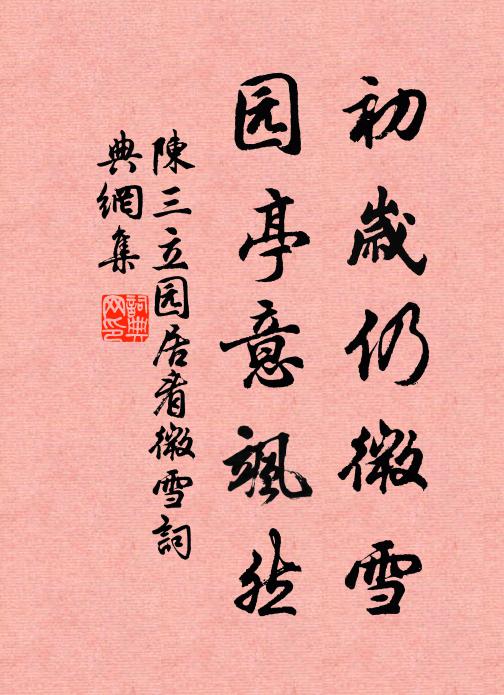 初歲仍微雪
园亭意飒然
陳三立园居看微雪詞
典網集
詞典
网印